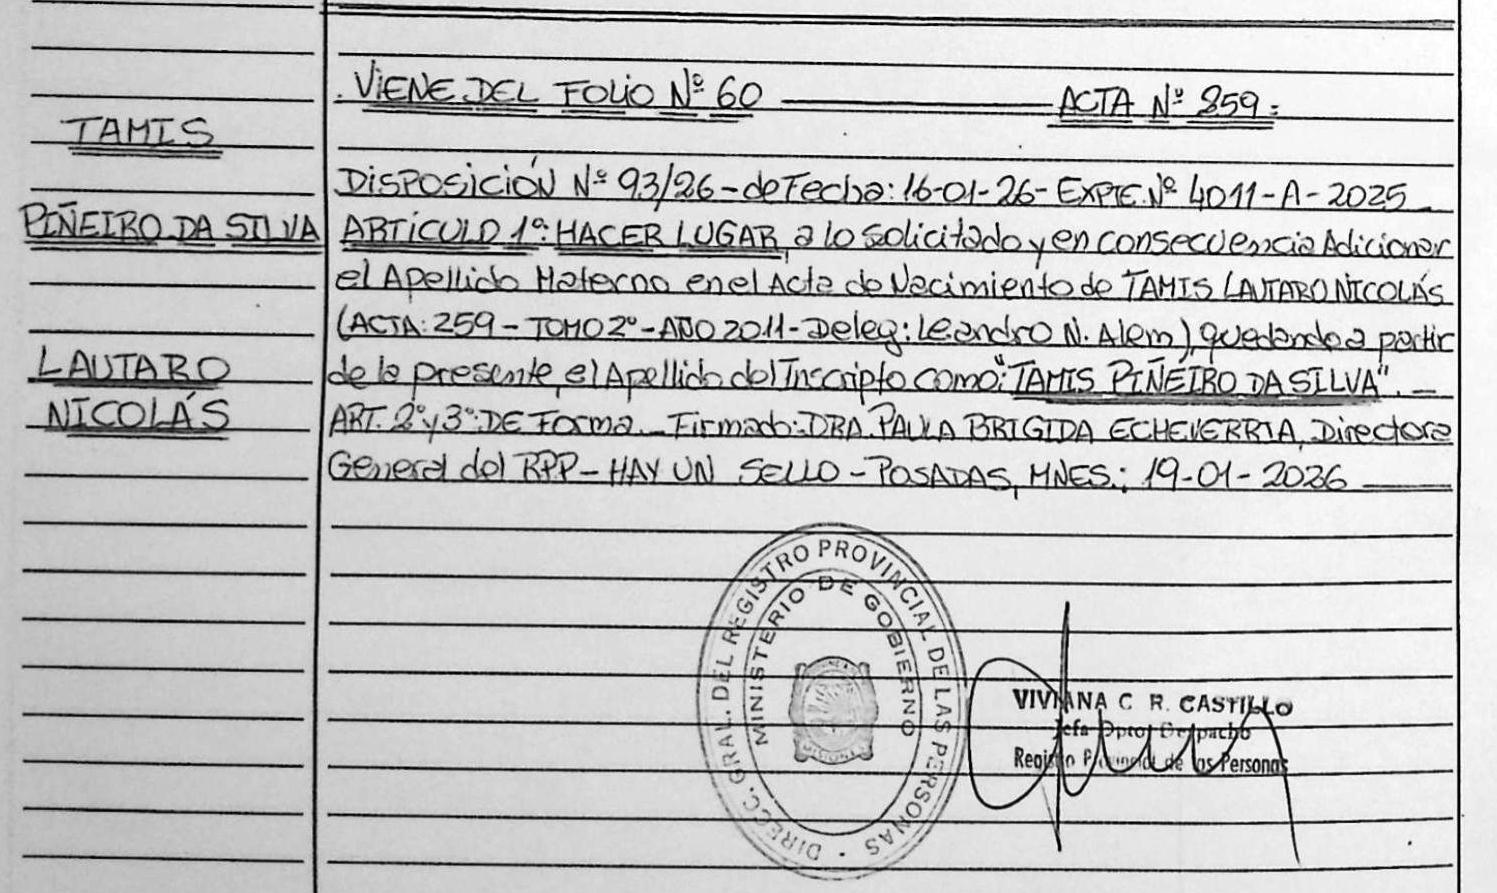 VIENE DEL FOLIO Nº 60 ACTA Nº 259=
TAMIS
PIÑEIRO DA SILVA
LAUTARO
NICOLÁS
DISPOSICIÓN Nº 93/26-de Fecha: 16-01-26- EXPTE.Nº 4011-A-2025
ARTÍCULO 1º: HACER LUGAR, a lo solicitado y en consecuencia Adicionar
el Apellido Materno en el Acta de Nacimiento de TAMIS LAUTARO NICOLÁS
(ACTA: 259 - TOMO 2º - AÑO 2011 - Deleg: Leandro N. Alem), quedando a partir
de la presente, el Apellido del Inscripto como: "TAMIS PIÑEIRO DA SILVA".
ART. 2º y 3º: DE Forma. Firmado: DRA. PAULA BRIGIDA ECHEVERRIA, Directora
General del RPP - HAY UN SELLO - POSADAS, MNES.; 19-01-2026
DIRECC. GRAL. DEL REGISTRO PROVINCIAL DE LAS PERSONAS
MINISTERIO DE GOBIERNO
VIVIANA C R. CASTILLO
Jefa Dpto Despacho
Registro Provincial de las Personas